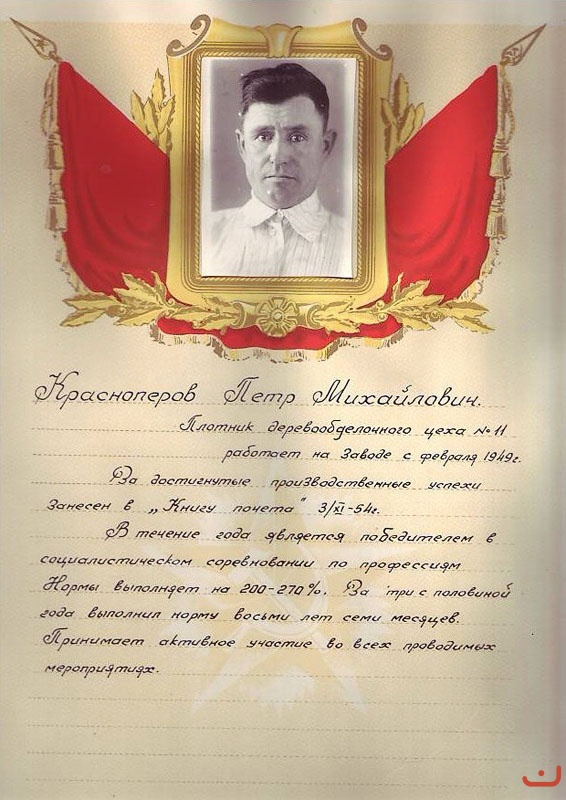 Красноперов Петр Михайлович.
Плотник деревообделочного цеха № 11
работает на Заводе с февраля 1949г.
За достигнутые производственные успехи
занесен в „Книгу почета" 3/XI-54г.
В течение года является победителем в
социалистическом соревновании по профессиям
Нормы выполняет на 200-270%. За три с половиной
года выполнил норму восьми лет семи месяцев.
Принимает активное участие во всех проводимых
мероприятиях.